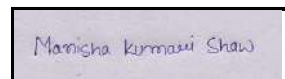 Manisha Kumari Shaw